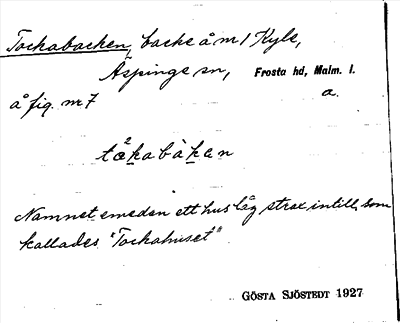 Tockabacken, backe å m 1 Kyle,
Äspinge sn, Frosta hd, Malm. l.
å fig. nr 7 a.
tåkabàkan
Namnet emedan ett hus låg strax intill, som
kallades "Tockahuset"
GÖSTA SJÖSTEDT 1927